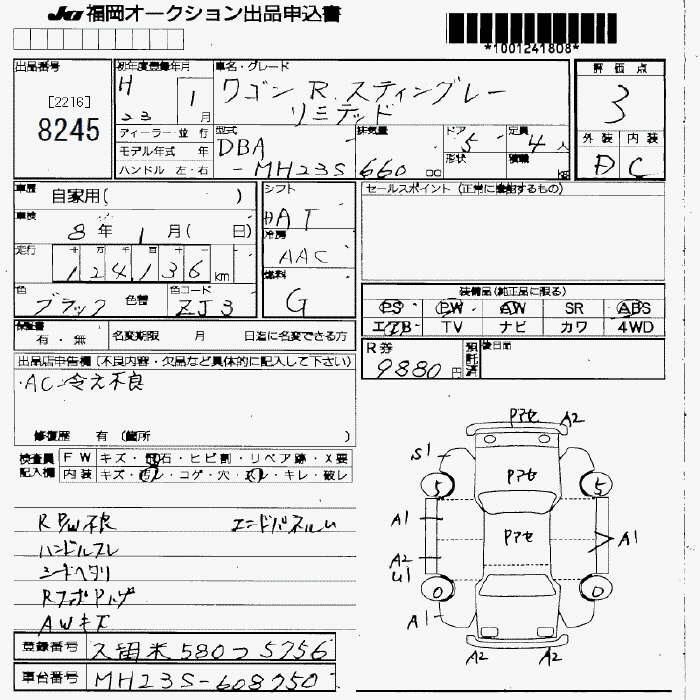 JU 福岡オークション出品申込書
*1001241808*
出品番号
[2216]
8245
初年度登録年月
H 23 1月
車名・グレード
ワゴンR.スティングレー
リミテッド
評価点
3
外装 内装
D C
ディーラー・並行
モデル年式 年
ハンドル 左・右
型式
DBA
-MH23S
排気量
660 cc
ドア
5
形状
定員
4人
積載
kg
車歴
自家用( )
車検
8年 1月( 日)
走行
十 万 千 百 十 一
124136 km
色
ブラック
色替
色コード
ZJ3
シフト
AT
冷房
AAC
燃料
G
セールスポイント(正常に機能するもの)
装備品(純正品に限る)
PS PW AW SR ABS
エアB TV ナビ カワ 4WD
保証書
有・無
名変期限 月 日迄に名変できる方
R券
9880円
預託済
後日品
出品店申告欄(不良内容・欠品など具体的に記入して下さい)
・AC冷え不良
修復歴 有(箇所 )
検査員記入欄
FW キズ・飛石・ヒビ割・リペア跡・X要
内装 キズ・汚レ・コゲ・穴・スレ・キレ・破レ
R P/W不良
ハンドルスレ
シートヘタリ
AWキズ
登録番号
久留米580つ5756
車台番号
MH23S-608750
Pアセ A2
S1
Pアセ
5 5
A1
Pアセ
A1
A2
U1
0 0
A1
A2 A2